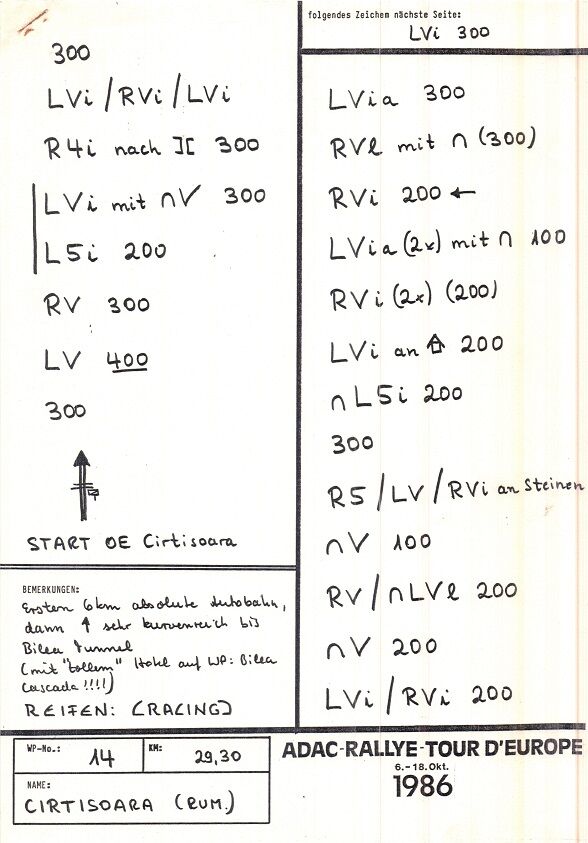 300
LVi / RVi / LVi
R4i nach ][ 300
LVi mit ∩V 300
L5i 200
RV 300
LV 400
300
START OE Cirtisoara
BEMERKUNGEN:
Ersten 6km absolute Autobahn,
dann ↑ sehr kurvenreich bis
Bilea Tunnel
(mit "tollem" Hotel auf WP: Bilea
Cascada!!!!)
REIFEN: [RACING]
folgendes Zeichem nächste Seite:
LVi 300
LVia 300
RVl mit ∩ (300)
RVi 200 ←
LVia (2x) mit ∩ 100
RVi (2x) (200)
LVi an ⇧ 200
∩ L5i 200
300
R5 / LV / RVi an Steinen
∩V 100
RV / ∩LVl 200
∩V 200
LVi / RVi 200
WP-No.: 14 KM: 29,30
NAME:
CIRTISOARA (RUM.)
ADAC-RALLYE-TOUR D'EUROPE
6.-18.Okt.
1986